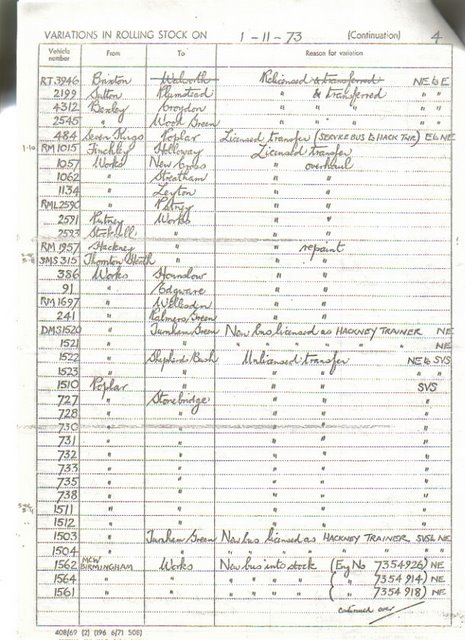 VARIATIONS IN ROLLING STOCK ON 1-11-73 (Continuation) 4
Vehicle number From To Reason for variation
RT3946 Brixton Walworth Relicensed & transferred NE to E
2199 Sutton Plumstead " & transferred " "
4312 Bexley Croydon " " " " "
2545 " Wood Green " " " " "
484 Seven Kings Poplar Licensed transfer (SERVICE BUS to HACK TNR) E to NE
1-10 RM1015 Finchley Holloway Licensed transfer
1057 Works New Cross " overhaul
1062 " Streatham " "
1134 " Leyton " "
RML2590 " Putney " "
2591 Putney Works " "
2593 Stockwell " " "
RM1957 Hackney " " repaint
SMS315 Thornton Heath " " "
386 Works Hounslow " "
91 " Edgware " "
RM1697 " Willesden " "
241 " Palmers Green " "
DMS1520 Turnham Green New bus licensed as HACKNEY TRAINER NE
1521 " " " " " " " NE
1522 Shepherds Bush Unlicensed transfer NE to SVS
1523 " " " " "
1510 Poplar " " " SVS
727 " Stonebridge " "
728 " " " "
730 " " " "
731 " " " "
732 " " " "
733 " " " "
735 " " " "
738 " " " "
1511 " " " "
1512 " " " "
1503 Turnham Green New bus licensed as HACKNEY TRAINER SVS to NE
1504 " " " " " " " " "
1562 MCW BIRMINGHAM Works New bus into stock (Eng No 7354926) NE
1564 " " " " " " ( " 7354914) NE
1561 " " " " " " ( " 7354918) NE
continued over
408/69 (2) (196 6/71 50B)